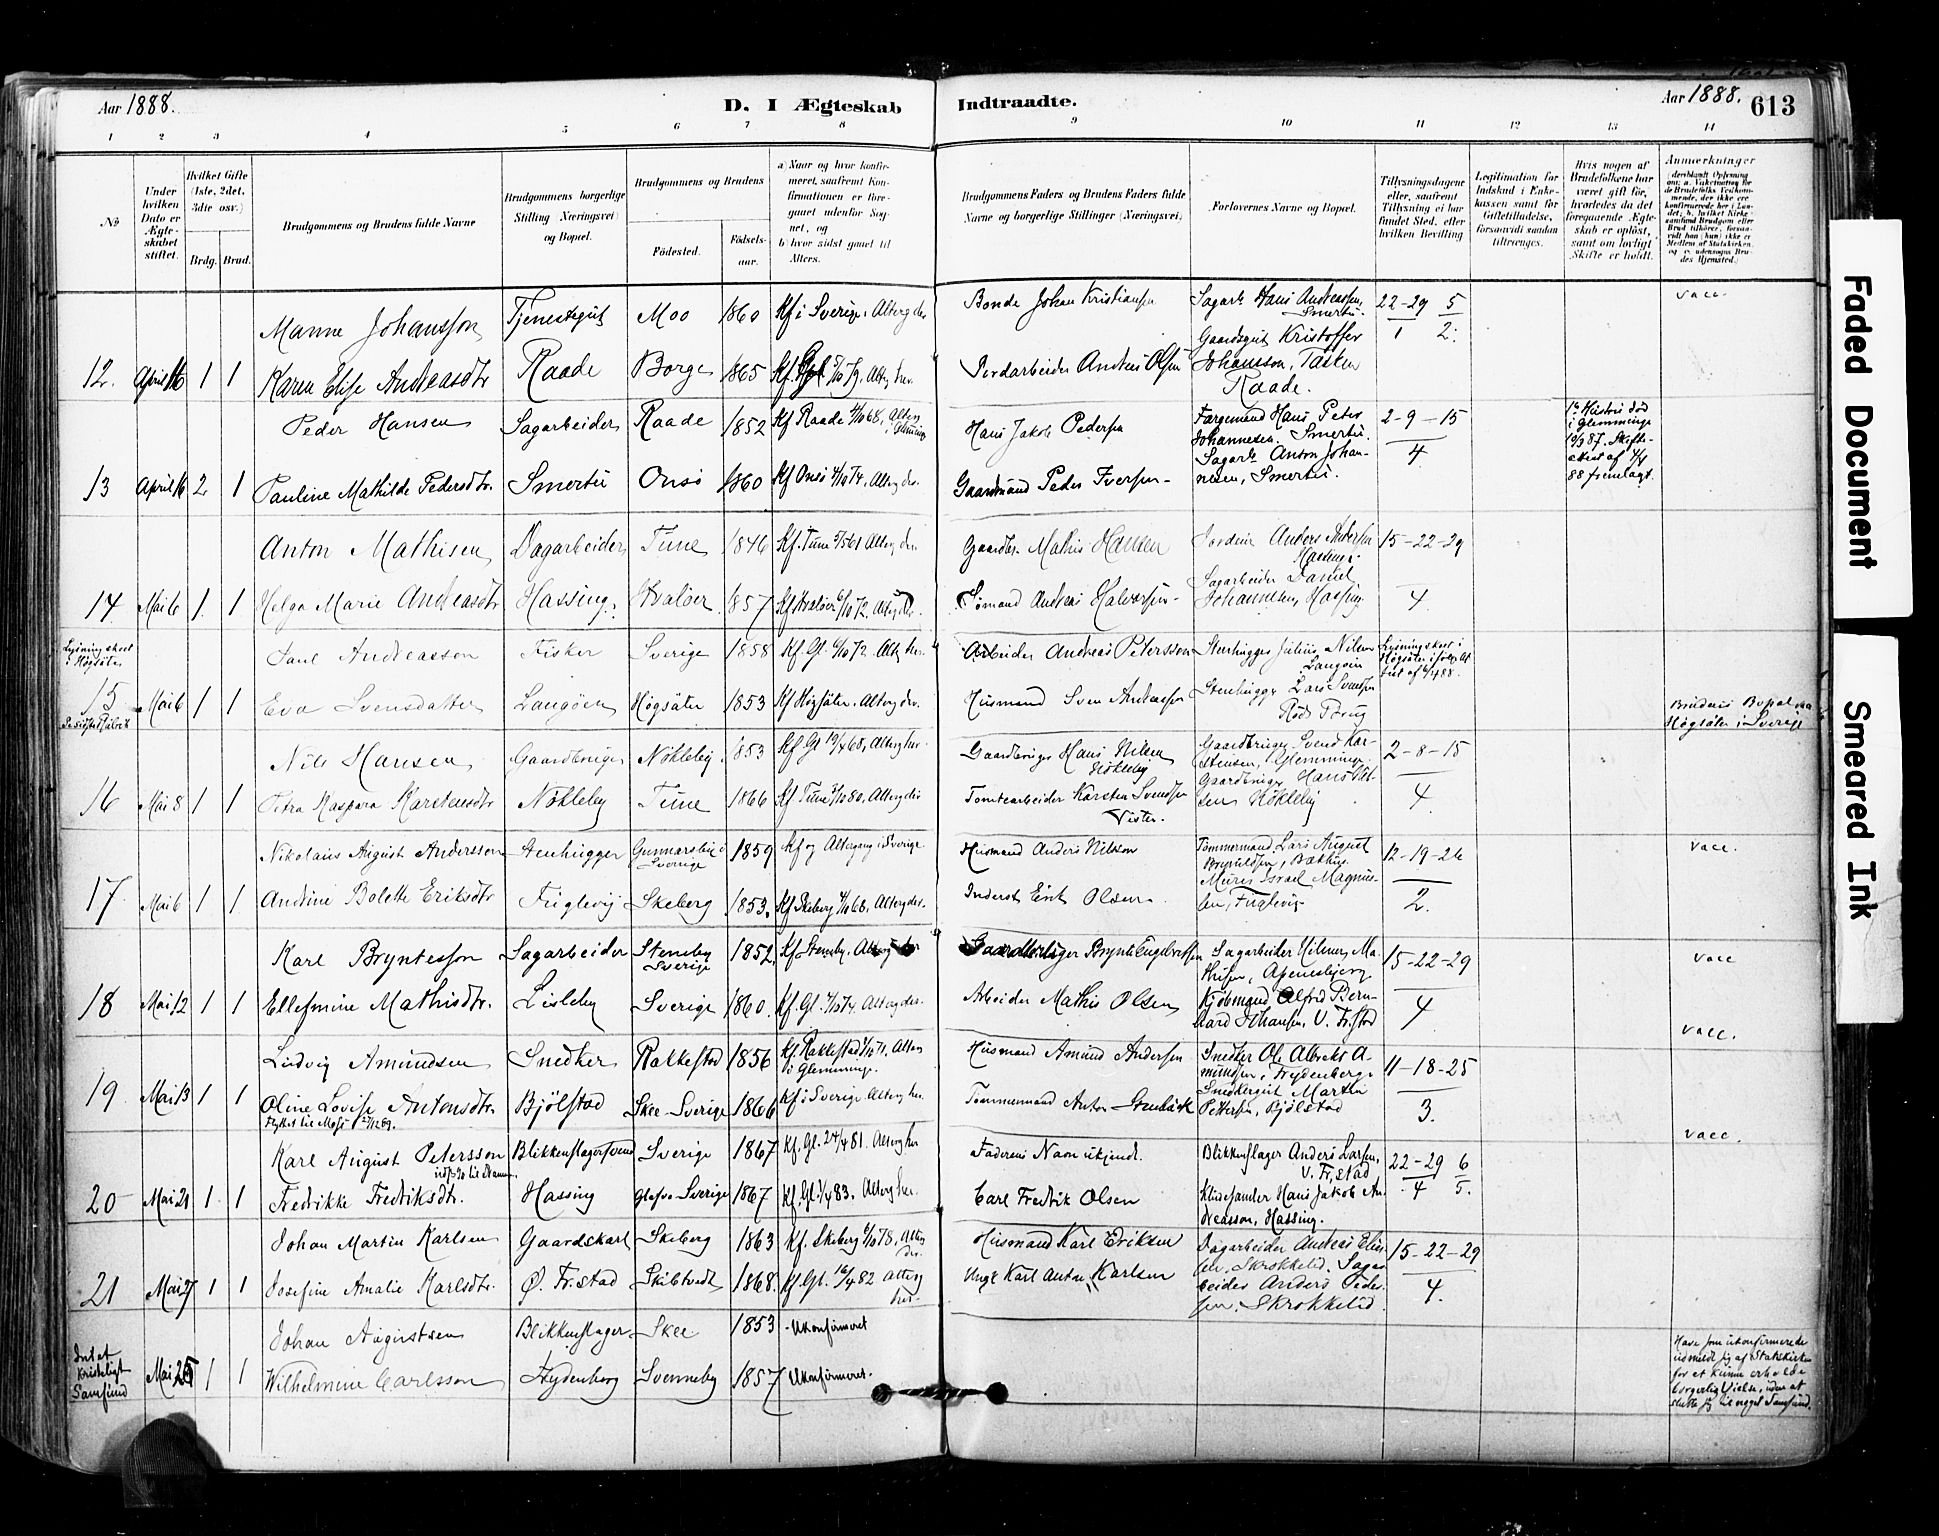 Aar 1888.
D. I Ægteskab
Indtraadte.
Aar 1888.
613
1 2 3 4 5 6 7 8 9 10 11 12 13 14
№
Under hvilken Dato er Ægteskabet stiftet.
Hvilket Gifte (1ste, 2det, 3die osv.)
Brdg. Brud.
Brudgommens og Brudens fulde Navne
Brudgommens borgerlige Stilling (Næringsvei) og Bopæl.
Brudgommens og Brudens
Fødested.
Fødselsaar.
a) Naar og hvor konfirmeret, saafremt Konfirmationen er foregaaet udenfor Sognet, og
b) hvor sidst gaaet til Alters.
Brudgommens Faders og Brudens Faders fulde Navne og borgerlige Stillinger (Næringsvei)
Forlovernes Navne og Bopæl.
Tillysningsdagene eller, saafremt Tillysning ei har fundet Sted, efter hvilken Bevilling
Legitimation for Indskud i Enkekassen samt for Giftetilladelse, forsaavidt saadan tiltrænges.
Hvis nogen af Brudefolkene har været gift før, hvorledes da det foregaaende Ægteskab er opløst, samt om lovligt Skifte er holdt.
Anmærkninger
Manne Johansson Tjenestegut Moo 1860 Kf i Sverige. Alterg der
Bonde Johan Kristiansen
Sagarb. Hans Andreassen, Smertu.
22-29/1 5/2.
vacc.
Gaardsgut Kristoffer
12. April 16 1 1 Karen Elise Andreasdtr Raade Borge 1865
Jordarbeider Andreas Olsen
Johansson, Tasken
Raade.
Peder Hansen Sagarbeider Raade 1852 Kf Raade 4/10 68, Alterg i Glemminge
Hans Jakob Pedersen
Færgemand Hans Peter Johannesen. Smertu.
2-9-15
4
1ste Hustru død i Glemminge 10/9 87. Skifteattest af 4/4 88 fremlagt.
Sagarb. Anton Johannesen, Smertu.
13 April 16 2 1 Pauline Mathilde Pedersdtr. Smertu Onsø 1860 Kf Onsø 4/10 74, Alterg der.
Gaardmand Peder Iversen
Anton Mathisen Dagarbeider Tune 1846 Kf. Tune 5/5 61 Alterg der
Gaardbr. Mathis Hansen
Anders Andersen Hassing.
15-22-29
4
14 Mai 6 1 1 Helga Marie Andreasdtr Hassing. Hvaløer 1857 Kf Hvaløer 6/10 72. Alterg der.
Sømand Andreas Halvorsen
Sagarbeider Daniel Johannesen, Hassing
Lysning skeet i Høgsäter
Paul Andreasson Fisker Sverige 1858 Kf. Gl. 6/10 72. Alterg her.
Arbeider Andreas Petersson
Stenhugger Julius Nilsen Langøen
Lysning skeet i Høgsäter
15 Mai 6 1 1 Eva Svensdatter Langøen Høgsäter 1853 Kf Høgsäter. Alterg der.
Husmand Sven Andersson
Stenhugger Lars Svensson
Brudens Bopæl var Høgsäter i Sverige
Nils Hansen Gaardbruger Nøkleby 1853 Alterg her.
Gaardbruger Hans Nilsen Nøkleby
Gaardbruger Svend Karstensen, Glemminge
2-8-15
4
16 Mai 8 1 1 Petra Kaspara Karstensdtr Nøkleby Tune 1866 Kf. Tune 3/10 80. Alterg der
Tomtearbeider Karsten Svendsen Vister.
Gaardbruger Hans Nøkleby
Nikolaus August Andersson Stenhugger Gunnarsby i Sverige 1859 Kf og Altergang i Sverige
Husmand Anders Nilsson
Tømmermand Lars August Bryntildsen,
12-19-26
2.
vacc.
17 Mai 6 1 1 Andrine Bolette Eriksdtr Fuglevig Skeberg 1853. Kf Skeberg 4/10 68. Alterg der.
Inderst Erik Olsen
Murer Israel Magnussen, Fuglevig
Karl Bryntesson Sagarbeider Steneby Sverige 1852. Kf. Steneby. Alterg der
Gaardbruger Brynte Engebretsen
Sagarbeider Hilmer Mathisen, Apenesbjerg
15-22-29
4
vacc
18 Mai 12 1 1 Ellefmine Mathisdtr. Lisleby Sverige 1860. Kf. Gl. 4/10 74. Alterg der.
Arbeider Mathis Olsen
Kjøbmand Alfred Bernhard Johansen, V. Fr.stad
vacc.
Ludvig Amundsen Snedker Rakkestad 1856 Kf. Rakkestad 1/10 71, Alterg i Glemminge.
Husmand Amund Andersen
Snedker Ole Albrekt Amundsen, Frydenberg
11-18-25
3.
19 Mai 13 1 1 Oline Lovise Antonsdtr. Bjølstad Skee Sverige 1866 Kf i Sverige Alterg her.
Flyttet til Moss 27/12 89.
Tømmermand Anton Stenbäck
Snedkergut Martin Pettersen, Bjølstad
vacc.
Karl August Petersson Blikkenslagersvend Sverige 1867 Kf. Gl. 24/4 81. Alterg her
Faderens Navn ukjendt.
Blikkenslager Anders Larsen, V. Fr.stad
22-29/4 6/5.
20 Mai 21 1 1 Fredrikke Fredriksdtr. Hassing Sverige 1867 Kf. Gl. 1/4 83. Alterg her.
Carl Fredrik Olsen
Hans Jakob Andreasson, Hassing.
Johan Martin Karlsen Gaardskarl Skeberg 1863 Kf. Skeberg 6/10 78, Alterg der.
Husmand Karl Eriksen
Dagarbeider Andreas Eliassen. Skrokkelid.
15-22-29
4.
21 Mai 27 1 1 Josefine Amalie Karlsdtr. Ø. Fr.stad Skibtvedt 1868. Kf. Gl. 16/4 82 Alterg her.
Ungk Karl Anton Karlsen
Sagarbeider Anders Pedersen. Skrokkelid.
Johan Augustsen Blikkenslager Skee 1853 Ukonfirmeret
Intet Kristeligt Samfund
Mai 25 1 1 Wilhelmine Carlsson Frydenberg Svenneby 1857 Ukonfirmeret.
Have som ukonfirmerede udmeldt sig af Statskirken for at kunne erholde borgerlig Vielse, uden at slutte sig til noget Samfund.
Faded Document
Smeared Ink